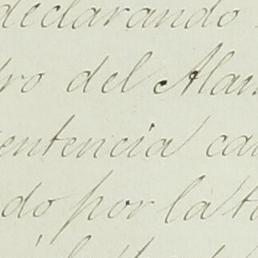 declarando
ro del Alam
entencia ca
do por la t